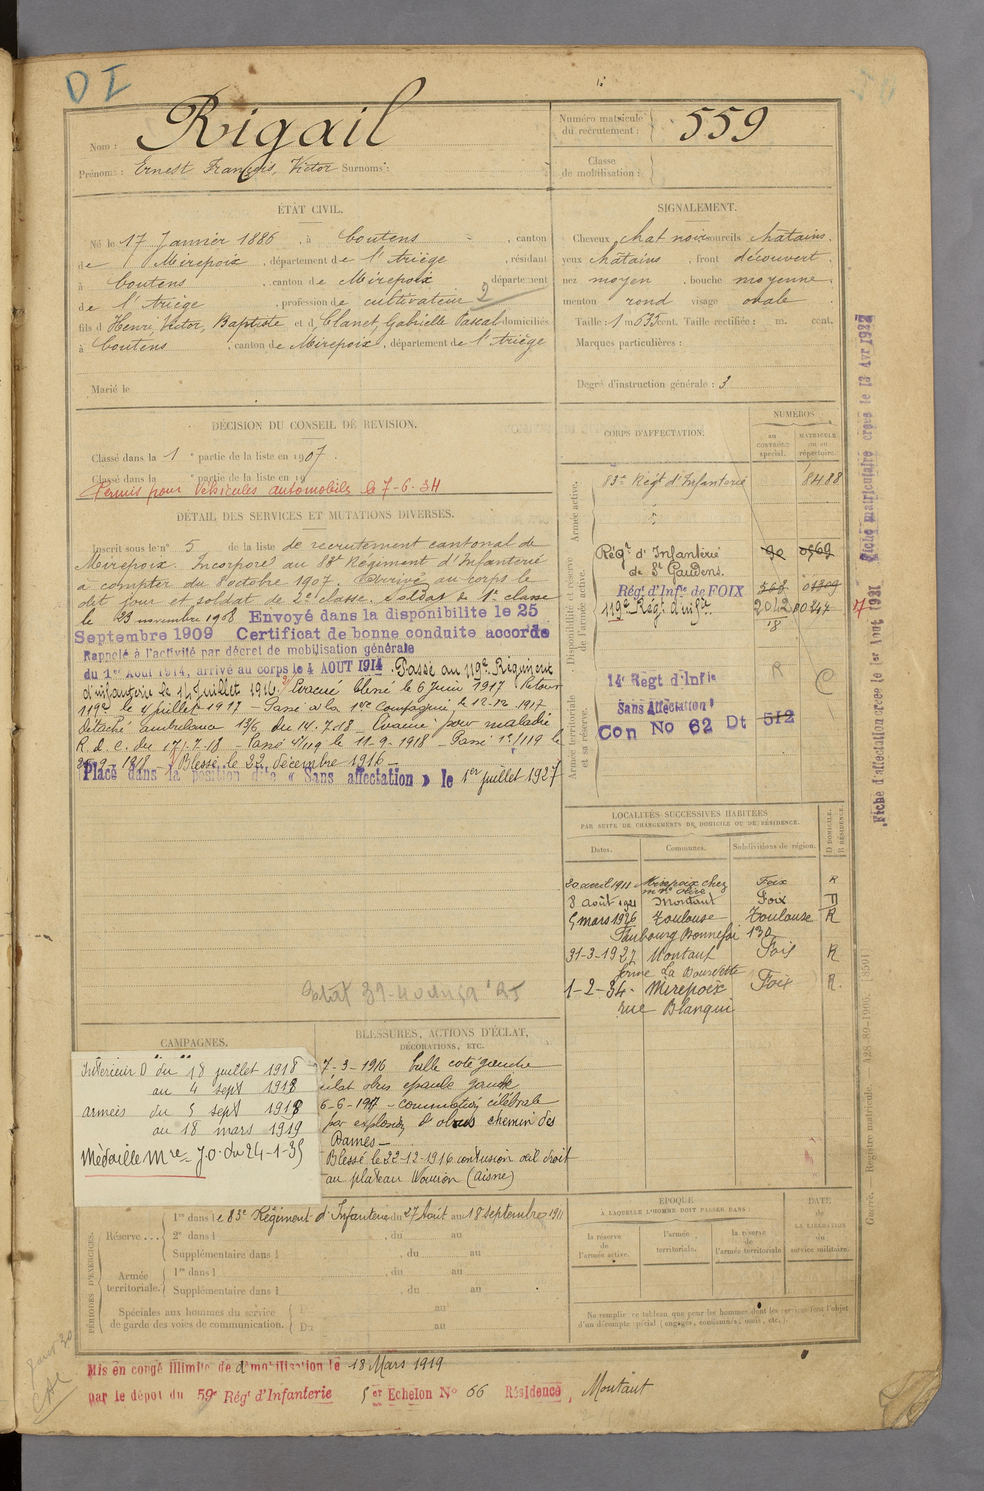 DI
Nom : Rigail
Prénoms : Ernest François, Victor Surnoms :
Numéro matricule du recrutement : 559
Classe de mobilisation :
ÉTAT CIVIL.
Né le 17 Janvier 1886, à Coutens, canton
de Mirepoix, département de l'Ariège, résidant
à Coutens, canton de Mirepoix, département
de l'Ariège, profession de cultivateur 2
fils d'Henri, Victor, Baptiste et d Clanet, Gabrielle Pascal domiciliés
à Coutens, canton de Mirepoix, département de l'Ariège
Marié le
SIGNALEMENT.
Cheveux chat noir sourcils chatains.
yeux chatains, front découvert.
nez moyen, bouche moyenne.
menton rond visage ovale.
Taille : 1 m 635 cent. Taille rectifiée : m. cent.
Marques particulières :
Degré d'instruction générale : 3
DÉCISION DU CONSEIL DE RÉVISION.
Classé dans la 1e partie de la liste en 1907.
Classé dans la e partie de la liste en 19
Permis pour Véhicules automobiles le 7-6-34
DÉTAIL DES SERVICES ET MUTATIONS DIVERSES.
Inscrit sous le n° 5 de la liste de recrutement cantonal de
Mirepoix. Incorporé au 88e Régiment d'Infanterie
à compter du 8 octobre 1907. Arrivé au corps le
dit jour et soldat de 2e classe. Soldat de 1e classe
le 23 novembre 1908 Envoyé dans la disponibilité le 25
Septembre 1909 Certificat de bonne conduite accordé
Rappelé à l'activité par décret de mobilisation générale
du 1er Aout 1914, arrivé au corps le 4 AOUT 1914. Passé au 119e Régiment
d'infanterie le 14 Juillet 1916. Evacué blessé le 6 Juin 1917 Retour
119e le 4 juillet 1917 - Passé à la 14e Compagnie le 12-12-1917
Détaché ambulance 13/6 du 14-7-18 - Evacué pour maladie
R. d. C. du 17-7-18 - Passé 4/119 le 11-9-1918 - Passé 1e/119 le
- Blessé le 22 décembre 1916 -
Placé dans la position dite « Sans affectation » le 1er juillet 1927
CORPS D'AFFECTATION.
NUMÉROS
au CONTRÔLE spécial.
MATRICULE ou au répertoire.
Armée active.
83e Régt d'Infanterie 8488
Disponibilité et réserve de l'armée active.
Régt d'Infanterie 90 0569
de St Gaudens.
Régt d'Infie de FOIX 568 01309
119e Régt d'infie 2042 00247
18
Armée territoriale et sa réserve.
14e Régt d'Infie R C
Sans Affectation
Con No 62 Dt 512
7
Fiche matriculaire créée le 13 Avr 1932
Fiche d'affectation créée le 1er Aout 1931
LOCALITÉS SUCCESSIVES HABITÉES
PAR SUITE DE CHANGEMENTS DE DOMICILE OU DE RÉSIDENCE.
Dates. Communes. Subdivisions de région. D DOMICILE. R RÉSIDENCE.
20 avril 1911 Mirepoix chez Foix R
8 Août 1921 Montaut Foix
5 mars 1926 Toulouse Toulouse R
Faubourg Bonnefoi 130
31-3-1927 Montaut Foix R
ferme La Bourdette
1-2-34 - Mirepoix Foix R.
rue Blanqui
CAMPAGNES.
Intérieur D du 18 juillet 1918
au 4 sept 1918
armées du 5 sept 1918
au 18 mars 1919
Médaille Mre - J.O. du 24-1-35
BLESSURES, ACTIONS D'ÉCLAT,
DÉCORATIONS, ETC.
7-3-1916 balle coté gauche
éclat obus épaule gauche
6-6-1917 - commotion cérébrale
par explosion d'obus chemin des
Dames -
Blessé le 22-12-1916 contusion œil droit
au plateau Vouron (Aisne)
PÉRIODES D'EXERCICES.
Réserve....
1re dans le 83e Régiment d'Infanterie du 27 Août au 18 septembre 1911
2e dans l , du au
Supplémentaire dans l , du au
Armée territoriale.
1re dans l , du au
Supplémentaire dans l , du au
Spéciales aux hommes du service
de garde des voies de communication.
Du au
Du au
ÉPOQUE
À LAQUELLE L'HOMME DOIT PASSER DANS :
la réserve de l'armée active.
l'armée territoriale.
la réserve de l'armée territoriale
DATE de LA LIBÉRATION du service militaire.
Ne remplir ce tableau que pour les hommes dont les services font l'objet
d'un décompte spécial (engagés, condamnés, omis, etc.).
Guerre. Registre matricule. A28-89-1906. [8591]
Mis en congé illimité de démobilisation le 18 Mars 1919
par le dépot du 59e Régt d'Infanterie 5er Echelon No 66 Résidence, Montaut